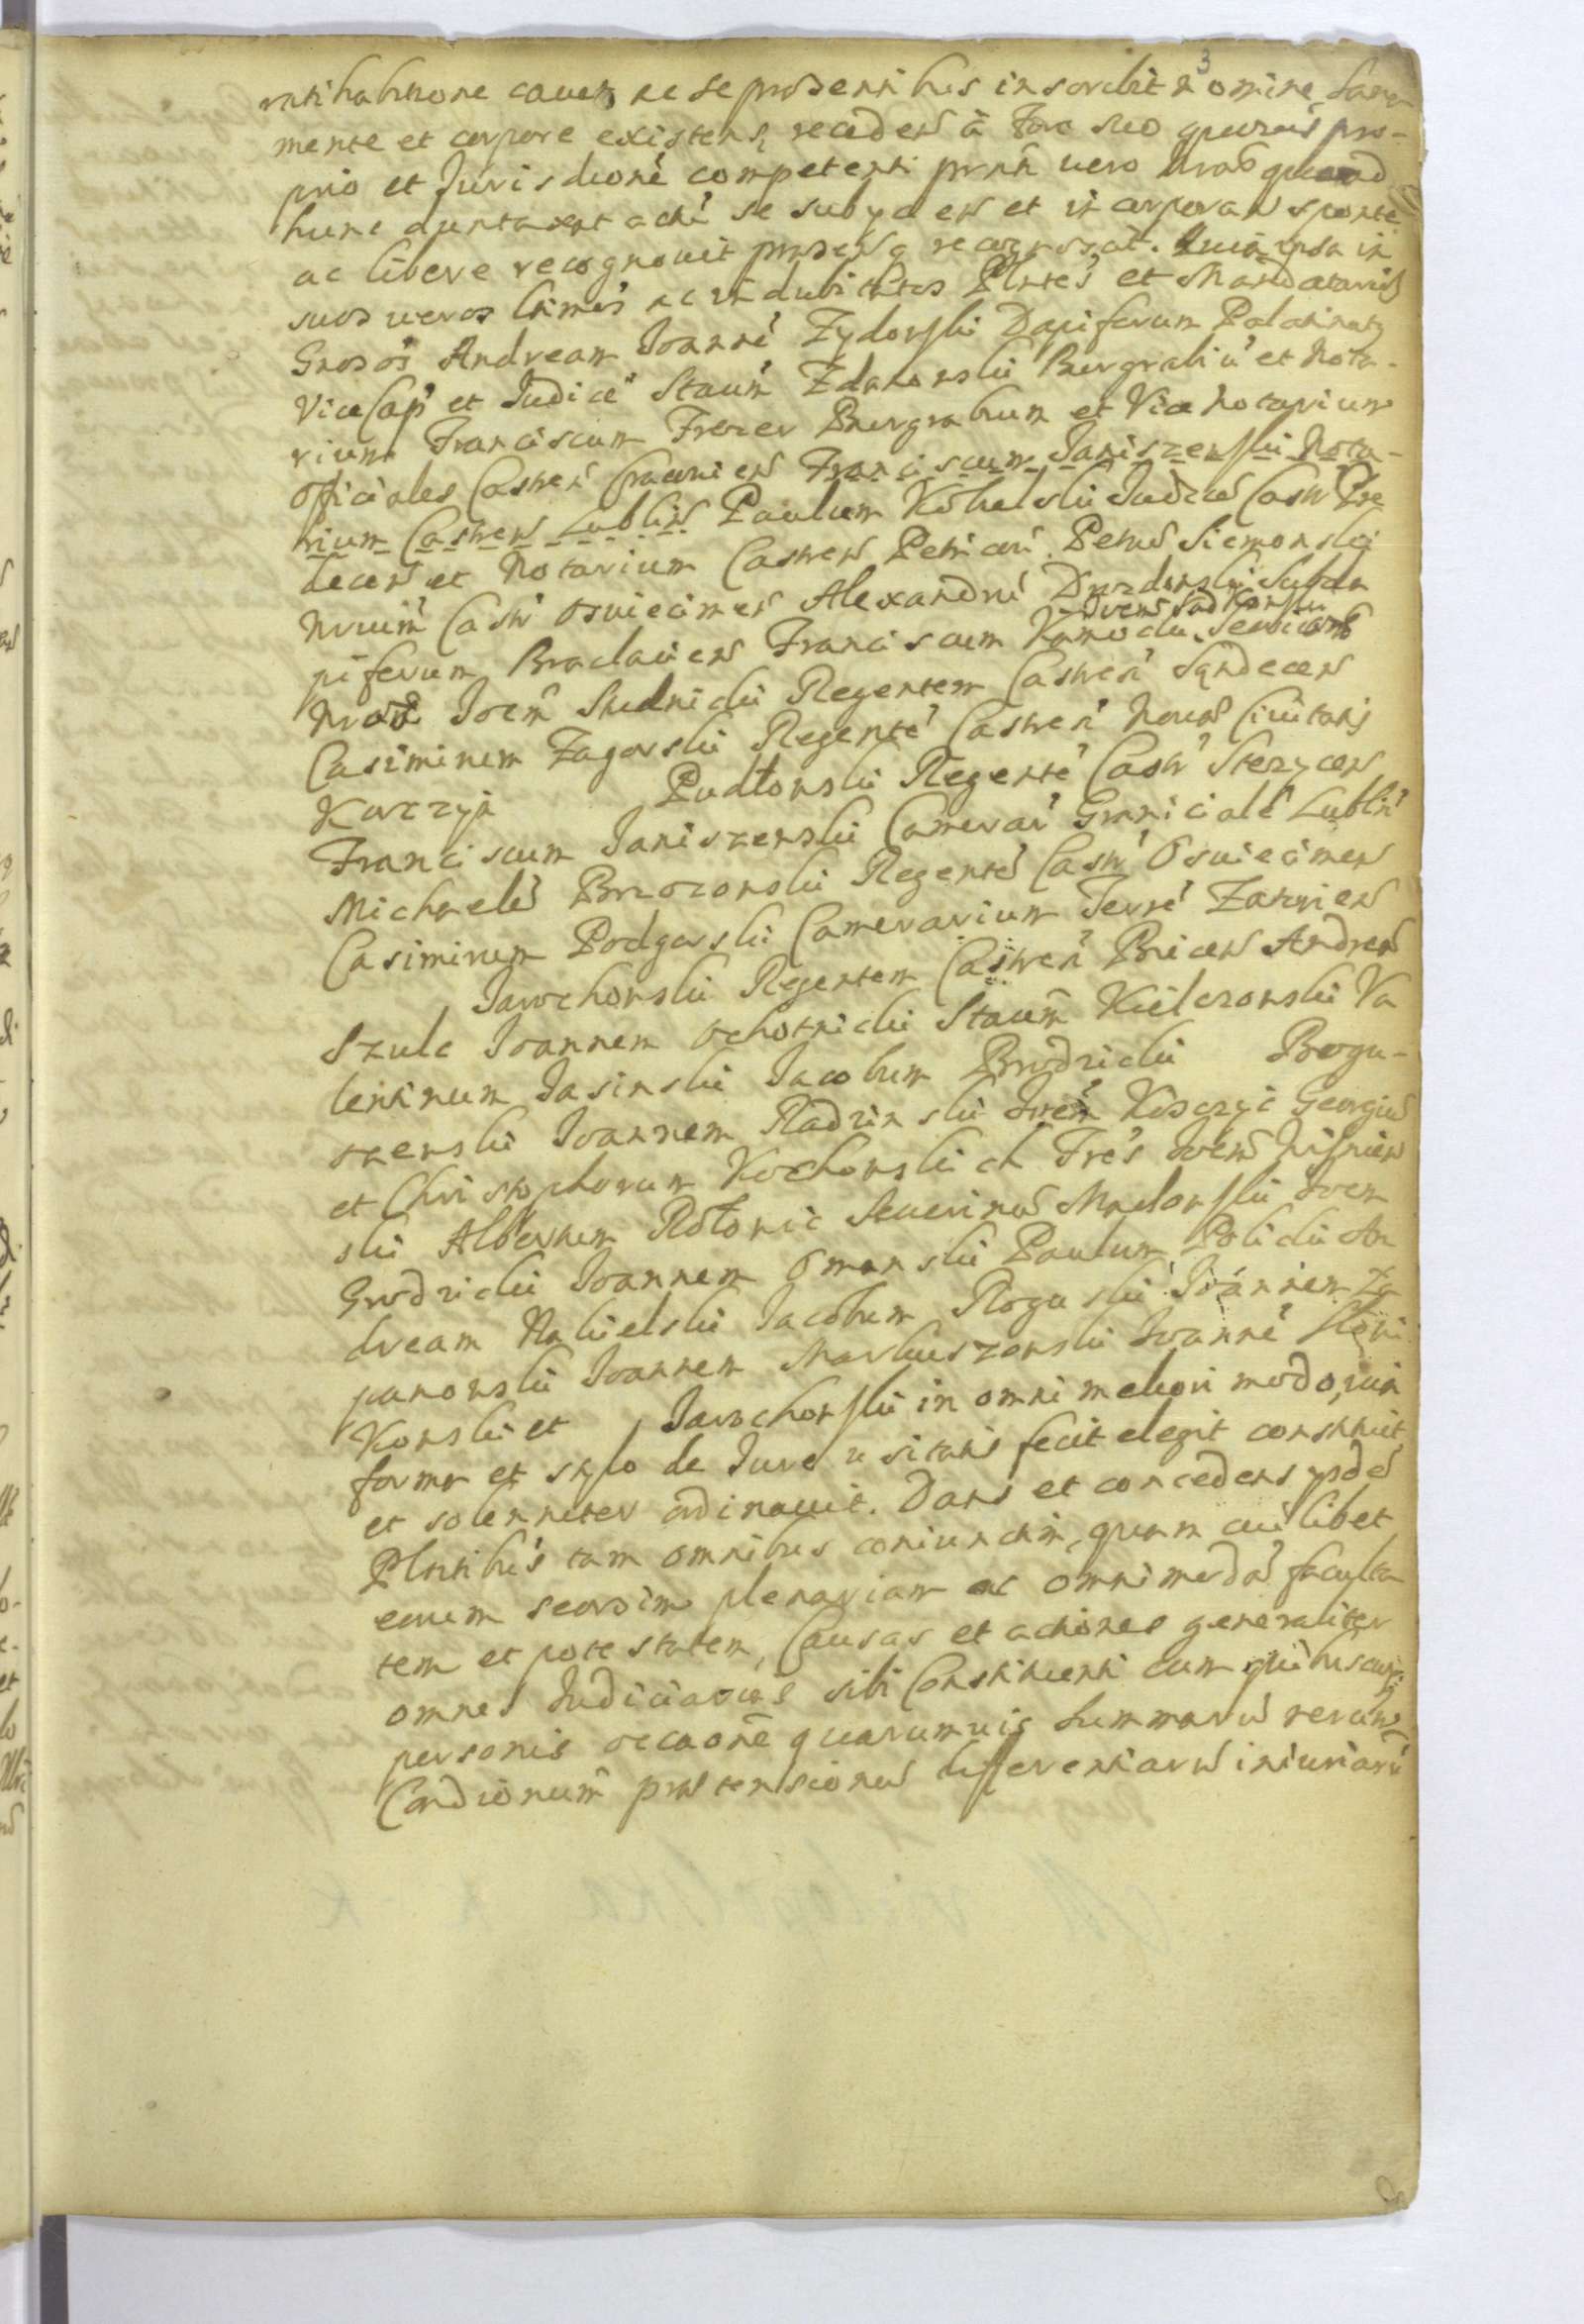 3
ratihabitione cavens ac se praesentibus inscribit nomine, sana
mente et corpore existens, recedens à Foro suo quovis pro-
prio et Jurisdione competenti prnti vero quoad
hunc duntaxat actu se subyciens et incorporans sponte
ac libere recognovit recognoscit. Quia ipsa in
suos veros ltimos ac indubitatos Plntes et Mandatarios
Gnosos Andream Joanne Zydowski Dapiferum Palatinatus
Vice Cap et Judice Staum Zdanowski Burgrabiu et Nota-
rium Franciscum Frezer Burgrabium et Vice Notarium
officiales Castren Cracovien Franciscum Janiszewski Nota-
rium Castren Lublin Paulum Kobielski Judice Castr
decen et Notarium Castren Petricovi Petrum Siemonski
Castr Osviecimen Alexandru Drozdowski Subda
piferum Braclavien Franciscum Komocki
Joem Studnicki Regentem Castren Sandecen
Casimirum Zagorski Regente Castren Novae Civitatis
Korczyn Pudlowski Regente Castr Stezycen
Franciscum Janiszewski Camerar Graniciale Lublin
Michaele Brzozowski Regente Castr Osviecimen
Casimirum Podgorski Camerarium Terre Zatorien
Jarochowski Regentem Castren Biecen Andrea
Szulc Joannem Ochotnicki Staum Kielczowski Va
lentinum Jasinski Jacobum Brodzicki Bogu-
szewski Joannem Radzinski Joem Koszczyc Georgiu
et Christophorum Kochowskich Fres Joem Wisniew
ski Albertum Rotowic Severinu Madowski Joem
Grodzicki Joannem Omanski Paulum Bolicki An
dream Nakielski Jacobum Roguski Joannem Za
panowski Joannem Markuszowski Joanne Slowi
kowski et Jarochowski in omni meliori modo, via
forma et stylo de Jure usitatis fecit elegit constituit
et solenniter ordinavit. Dans et concedens ysde
Plntibus tam omnibus coniunctim, quam cuilibet
eorum seorsim plenariam ac omnimoda faculta
tem et potestatem, Causas et actiones generaliter
omnes Judiciarias sibi Constituenti cum quibuscunq
personis occaone quarumvis Summaru rerum
Condionum praetensionu differentiaru iniuriaru